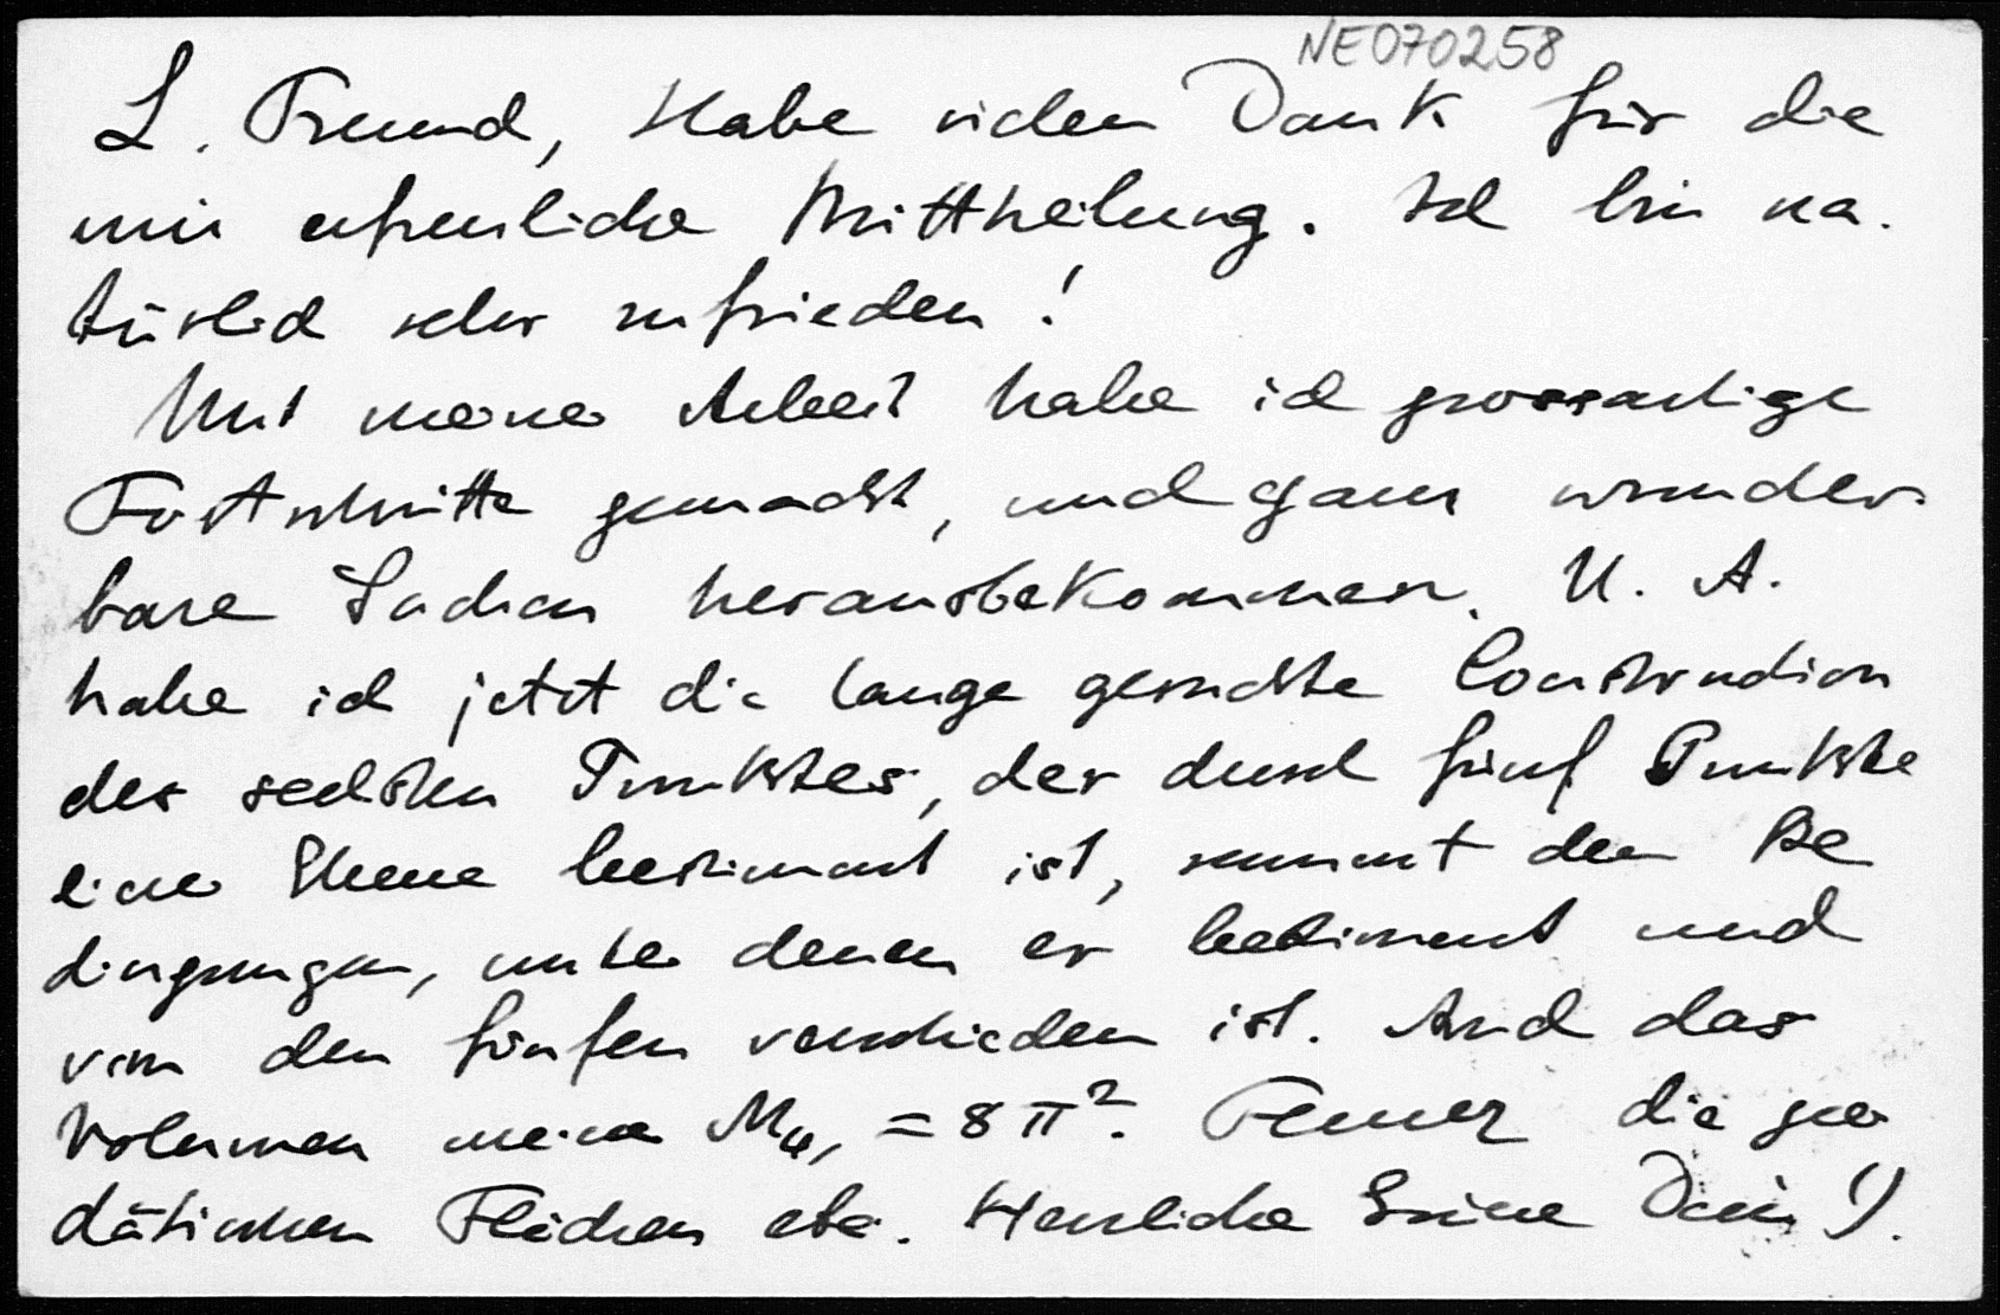 NE070258
L. Freund, Habe vielen Dank für die
mir erfreuliche Mittheilung. Ich bin na.
türlich sehr zufrieden!
Mit meiner Arbeit habe ich grossartige
Fortschritte gemacht, und ganz wunder-
bare Sachen herausbekommen. U. A.
habe ich jetzt die lange gesuchte Construction
des sechsten Punktes, der durch fünf Punkte
einer Ebene bestimmt ist, sammt den Be
dingungen, unter denen er bestimmt und
von den fünfen verschieden ist. Auch das
Volumen meiner M₄, = 8π². Ferner die geo
dätischen Flächen etc. Herzliche Grüsse Dein